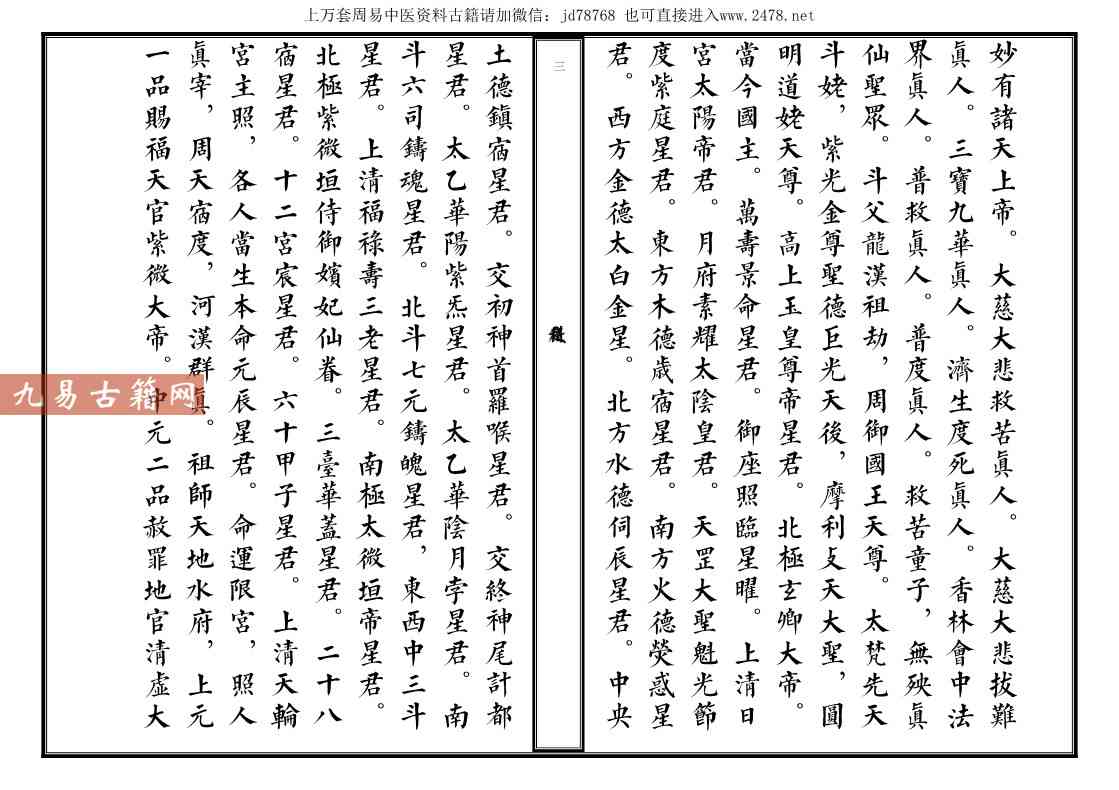 上万套周易中医资料古籍请加微信：jd78768 也可直接进入www.2478.net
妙有諸天上帝。大慈大悲救苦眞人。大慈大悲拔難
眞人。三寶九華眞人。濟生度死眞人。香林會中法
界眞人。普救眞人。普度眞人。救苦童子，無殃眞
仙聖眾。斗父龍漢祖劫，周御國王天尊。太梵先天
斗姥，紫光金尊聖德巨光天後，摩利攴天大聖，圓
明道姥天尊。高上玉皇尊帝星君。北極玄卿大帝。
當今國主。萬壽景命星君。御座照臨星曜。上清日
宮太陽帝君。月府素耀太陰皇君。天罡大聖魁光節
度紫庭星君。東方木德歲宿星君。南方火德熒惑星
君。西方金德太白金星。北方水德伺辰星君。中央
三
土德鎮宿星君。交初神首羅喉星君。交終神尾計都
星君。太乙華陽紫炁星君。太乙華陰月孛星君。南
斗六司鑄魂星君。北斗七元鑄魄星君，東西中三斗
星君。上清福祿壽三老星君。南極太微垣帝星君。
北極紫微垣侍御嬪妃仙眷。三臺華蓋星君。二十八
宿星君。十二宮宸星君。六十甲子星君。上清天輪
宮主照，各人當生本命元辰星君。命運限宮，照人
眞宰，周天宿度，河漢群眞。祖師天地水府，上元
一品賜福天官紫微大帝。中元二品赦罪地官清虛大
九易古籍网